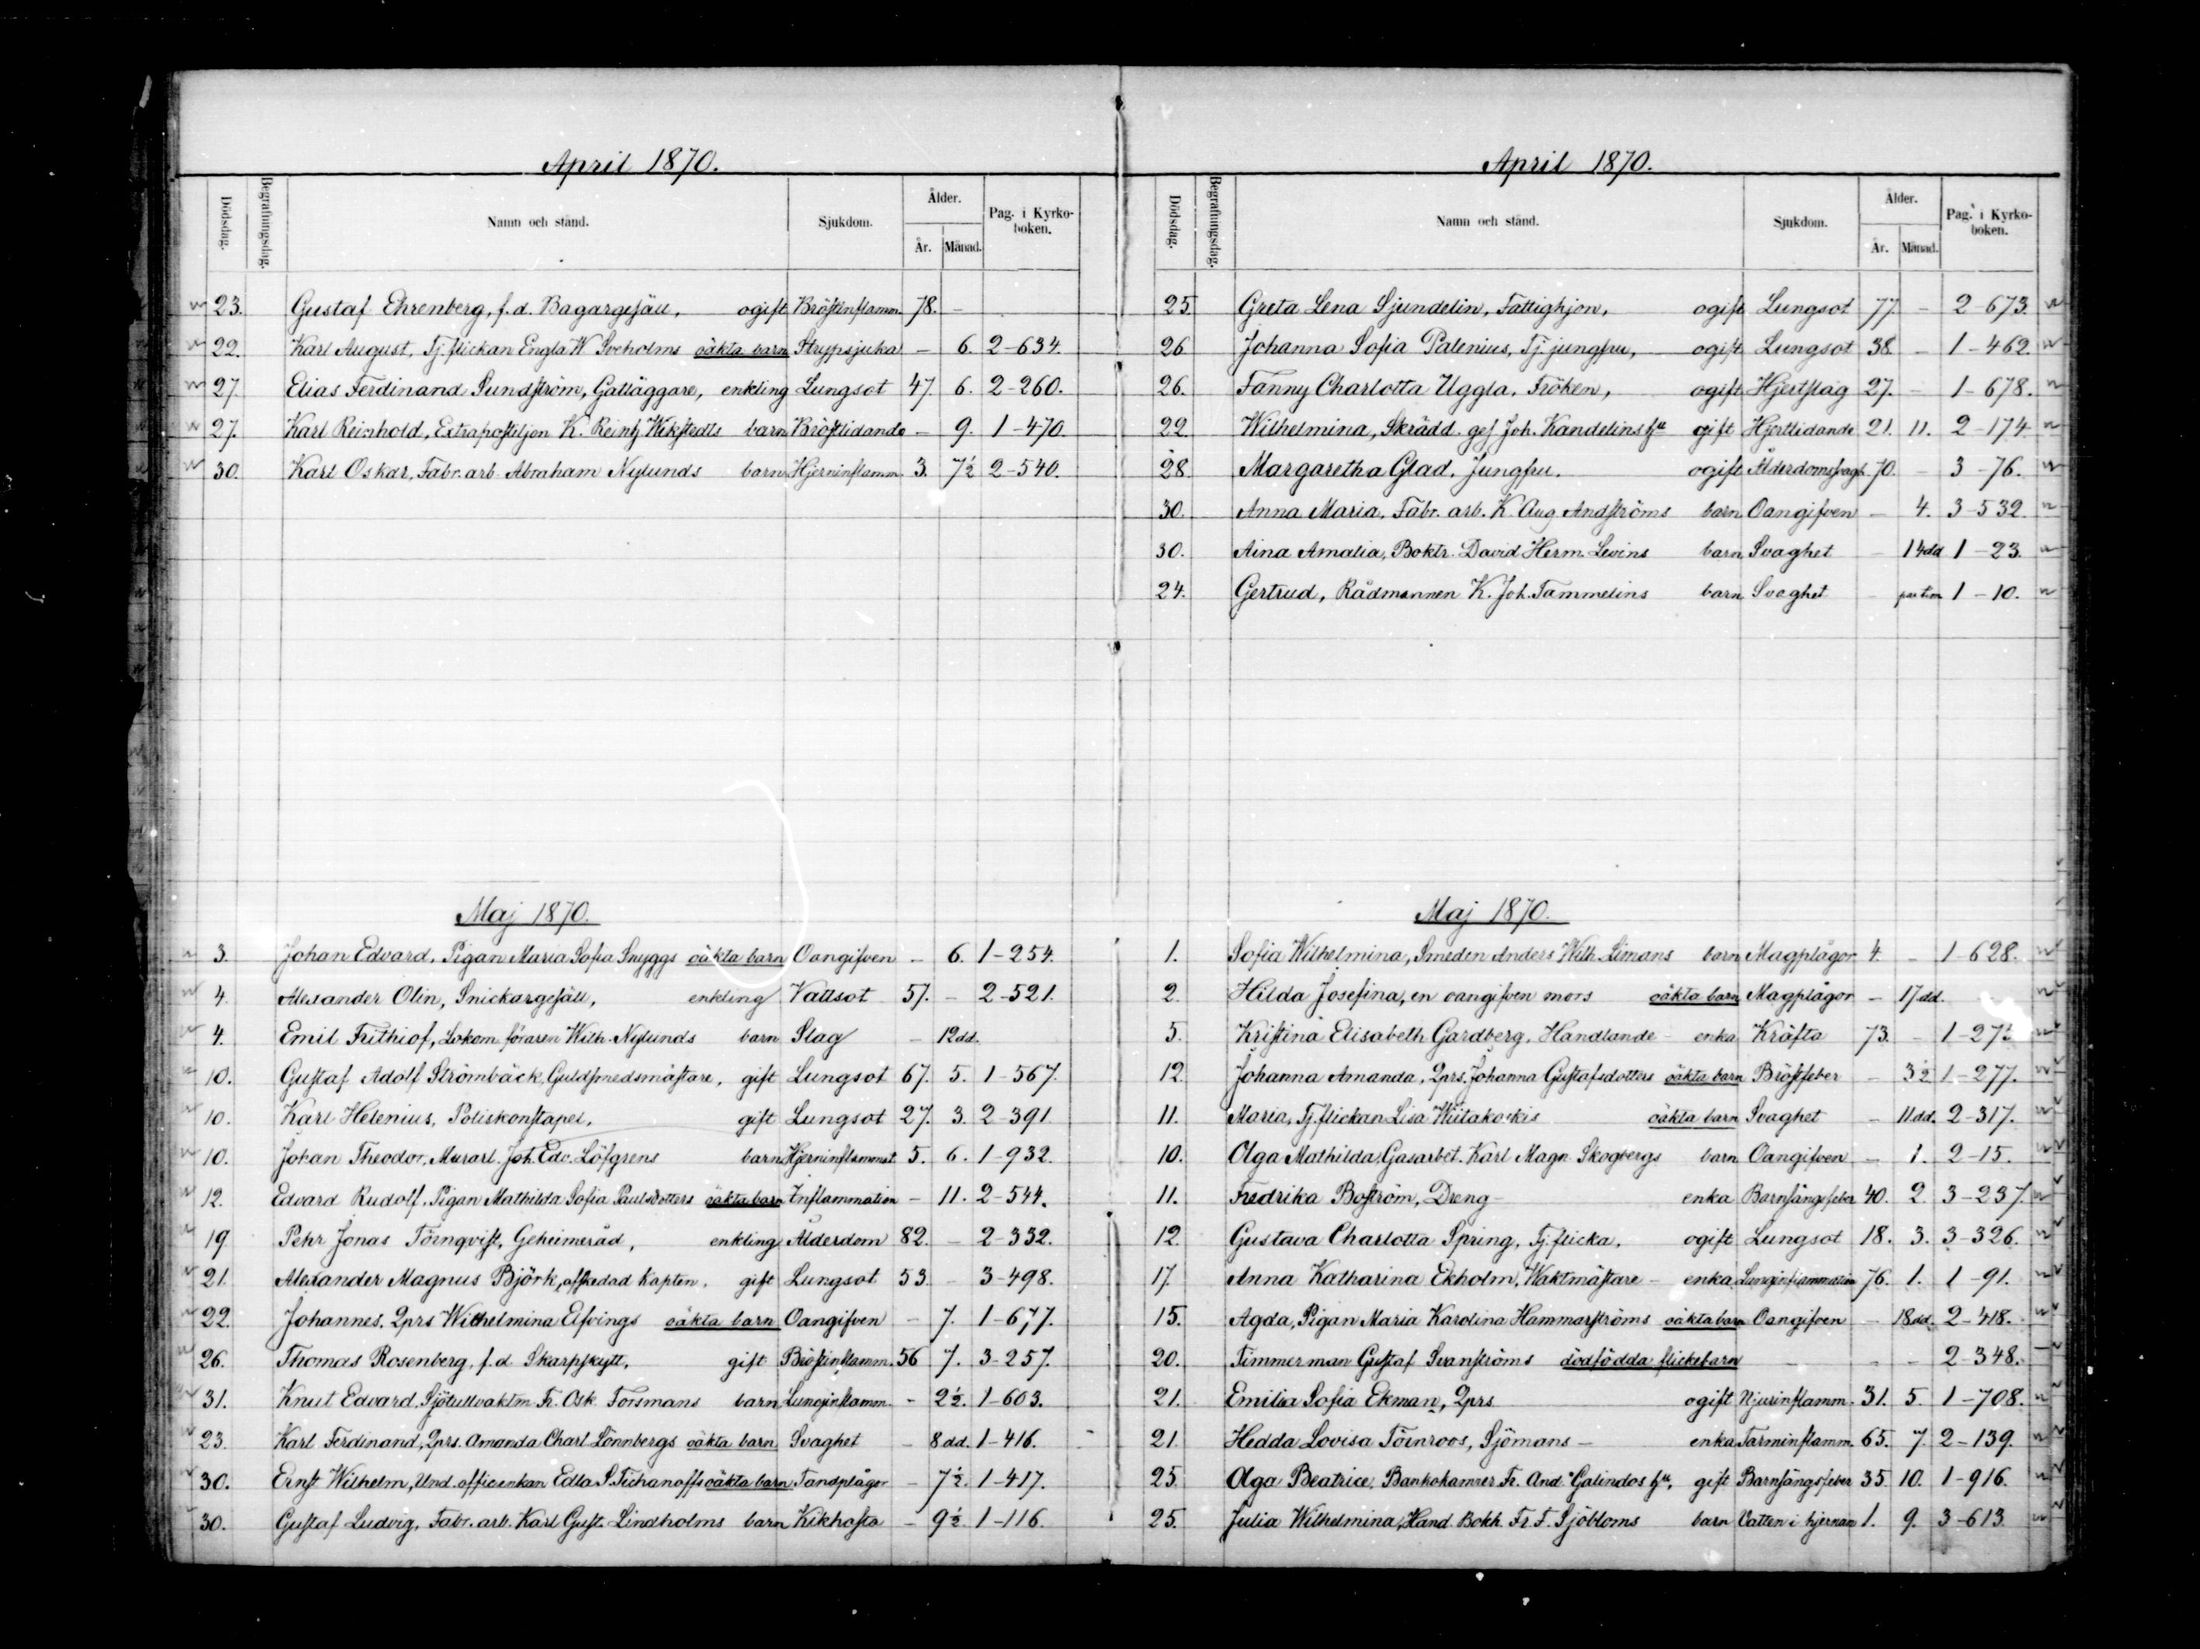 April 1870.
Dödsdag. Begrafningsdag. Namn och stånd. Sjukdom. Ålder. År. Månad. Pag. i Kyrkoboken.
23. Gustaf Ehrenberg, f.d. Bagargesäll, ogift Bröstinflamm. 78. –
22. Karl August, Tj.flickan Engla W Sveholms oäkta barn Strypsjuka – 6. 2-634.
27. Elias Ferdinand Sundström, Gatläggare, enkling Lungsot 47. 6. 2-260.
27. Karl Reinhold, Extrapostiljon K. Reinh Wikstedts barn Bröstlidande – 9. 1-470.
30. Karl Oskar, Fabr. arb. Abraham Nylunds barn Hjerninflamm. 3. 7½ 2-540.
Maj 1870.
3. Johan Edvard, Pigan Maria Sofia Snyggs oäkta barn Oangifven – 6. 1-254.
4. Alexander Olin, Snickargesäll, enkling Vattsot 57. – 2-521.
4. Emil Frithiof, Lokom. föraren Wilh. Nylunds barn Slag – 12 dd.
10. Gustaf Adolf Strömbäck, Guldsmedsmästare, gift Lungsot 67. 5. 1-567.
10. Karl Helenius, Poliskonstapel, gift Lungsot 27. 3. 2-391.
10. Johan Theodor, Murarl. Joh. Edv. Löfgrens barn Hjerninflammat. 5. 6. 1-932.
12. Edvard Rudolf, Pigan Mathilda Sofia Paulsdotters oäkta barn Inflammation – 11. 2-544.
19. Pehr Jonas Törnqvist, Geheimeråd, enkling Ålderdom 82. – 2-332.
21. Alexander Magnus Björk, afskedad Kapten, gift Lungsot 53. – 3-498.
22. Johannes, Qprs Wilhelmina Elfvings oäkta barn Oangifven – 7. 1-677.
26. Thomas Rosenberg, f.d. Skarpskytt, gift Bröstinflamm. 56 7. 3-257.
31. Knut Edvard, Sjötullvaktm. Fr. Osk. Forsmans barn Lunginflamm. – 2½. 1-603.
23. Karl Ferdinand, Qprs. Amanda Charl. Lönnbergs oäkta barn Svaghet – 8 dd. 1-416.
30. Ernst Wilhelm, Und. offic.enkan Edla S. Tichanoffs oäkta barn Tandplågor – 7½. 1-417.
30. Gustaf Ludvig, Fabr. arb. Karl Gust. Lindholms barn Kikhosta – 9½ 1-116.
April 1870.
Dödsdag. Begrafningsdag. Namn och stånd. Sjukdom. Ålder. År. Månad. Pag. i Kyrkoboken.
25. Greta Lena Sjundelin, Fattighjon, ogift Lungsot 77. – 2-673.
26. Johanna Sofia Palenius, Tj. jungfru, ogift Lungsot 38. – 1-462.
26. Fanny Charlotta Uggla, Fröken, ogift Hjertslag 27. – 1-678.
22. Wilhelmina, Skrädd. ges. Joh. Kandelins hu gift Hjertlidande 21. 11. 2-174
28. Margaretha Glad, Jungfru, ogift Ålderdomsvagh. 70. – 3-76.
30. Anna Maria, Fabr. arb. K. Aug Andströms barn Oangifven – 4. 3-532.
30. Aina Amalia, Boktr. David Herm. Levins barn Svaghet – 14 dd 1-23.
24. Gertrud, Rådmannen K. Joh. Tammelins barn Svaghet 1-10.
Maj 1870.
1. Sofia Wilhelmina, Smeden Anders Wilh. Limans barn Magplågor 4. – 1-628.
2. Hilda Josefina, en oangifven mors oäkta barn Magplågor – 17 dd.
5. Kristina Elisabeth Gardberg, Handlande- enka Kräfta 73. –
12. Johanna Amanda, Qprs. Johanna Gustafsdotters oäkta barn Bröstfeber – 3½ 1-277.
11. Maria, Tj. flickan Lisa oäkta barn Svaghet – 11 dd. 2-317.
10. Olga Mathilda, Gasarbet. Karl Magn. Skogbergs barn Oangifven – 1. 2-15.
11. Fredrika Boström, Dreng- enka Barnsängsfeber 40. 2. 3-237.
12. Gustava Charlotta Spring, Tj. flicka, ogift Lungsot 18. 3. 3-326.
17. Anna Katharina Ekholm, Waktmästare- enka Lunginflammation 76. 1. 1-91.
15. Agda, Pigan Maria Karolina Hammarströms oäkta barn Oangifven – 18 dd. 2-418.
20. Timmerman Gustaf Svanströms dödfödda flickebarn – – – 2-348.
21. Emilia Sofia Ekman, Qprs ogift Njurinflamm. 31. 5. 1-708.
21. Hedda Lovisa Törnroos, Sjömans- enka Tarminflamm. 65. 7. 2-139.
25. Olga Beatrice, Bankokamrer Fr. And. Galindos hu, gift Barnsängsfeber 35 10. 1-916.
25. Julia Wilhelmina, Hand. Bokh. Fr. F. Sjöbloms barn Vatten i hjernan 1. 9. 3-613